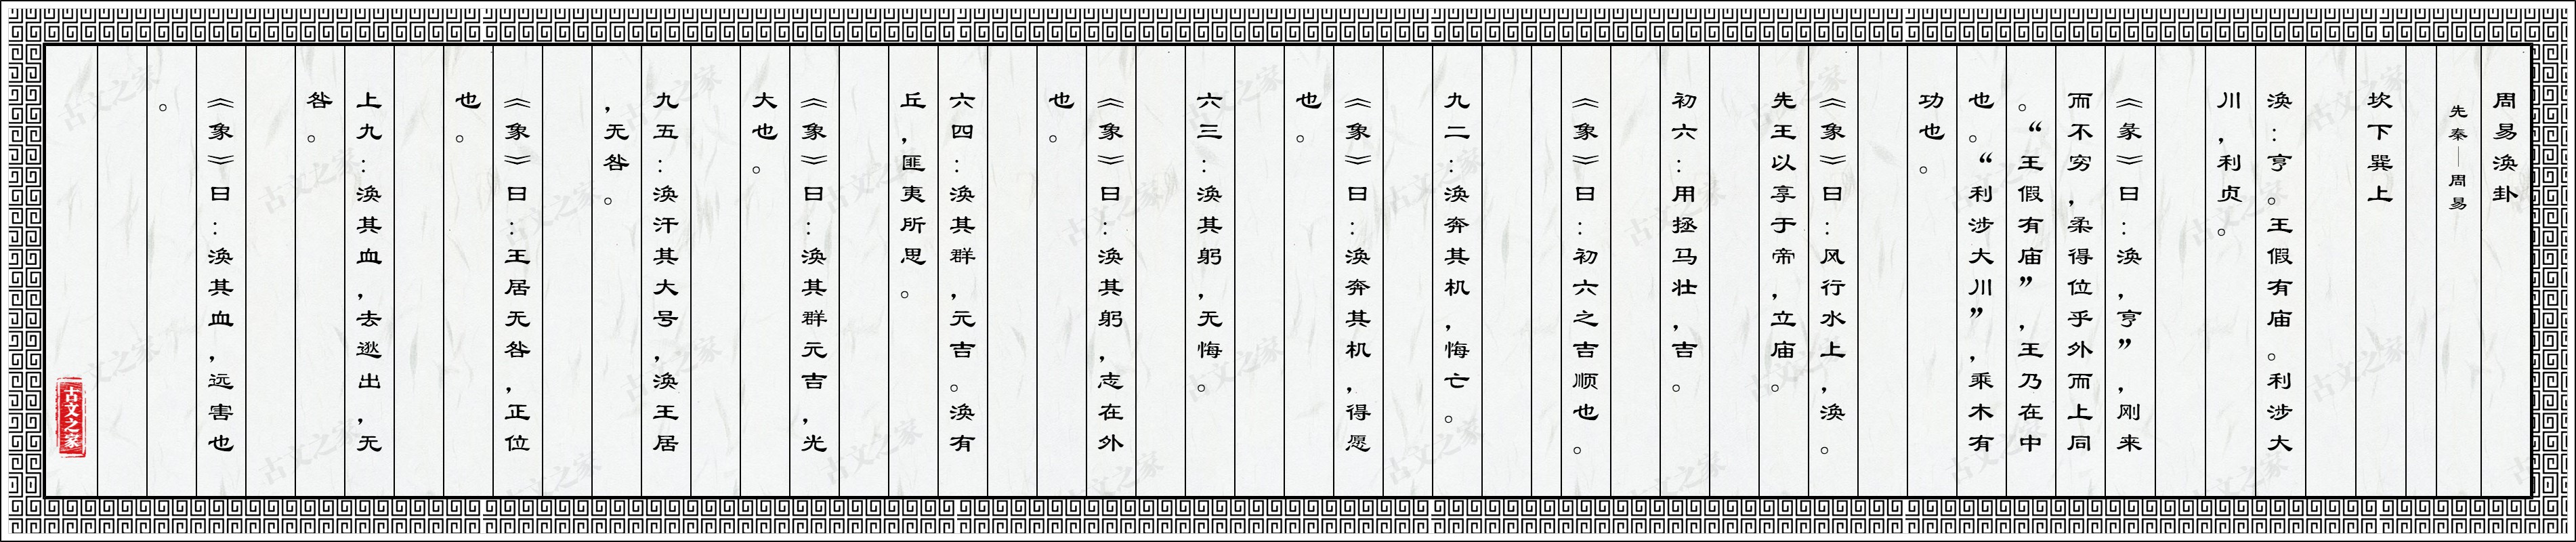 周易涣卦
先秦—周易
坎下巽上
涣：亨。王假有庙。利涉大
川，利贞。
《彖》曰：涣，亨”，刚来
而不穷，柔得位乎外而上同
。“王假有庙”，王乃在中
也。“利涉大川”，乘木有
功也。
《象》曰：风行水上，涣。
先王以享于帝，立庙。
初六：用拯马壮，吉。
《象》曰：初六之吉顺也。
九二：涣奔其机，悔亡。
《象》曰：涣奔其机，得愿
也。
六三：涣其躬，无悔。
《象》曰：涣其躬，志在外
也。
六四：涣其群，元吉。涣有
丘，匪夷所思。
《象》曰：涣其群元吉，光
大也。
九五：涣汗其大号，涣王居
，无咎。
《象》曰：王居无咎，正位
也。
上九：涣其血，去逖出，无
咎。
《象》曰：涣其血，远害也
。
古文之家